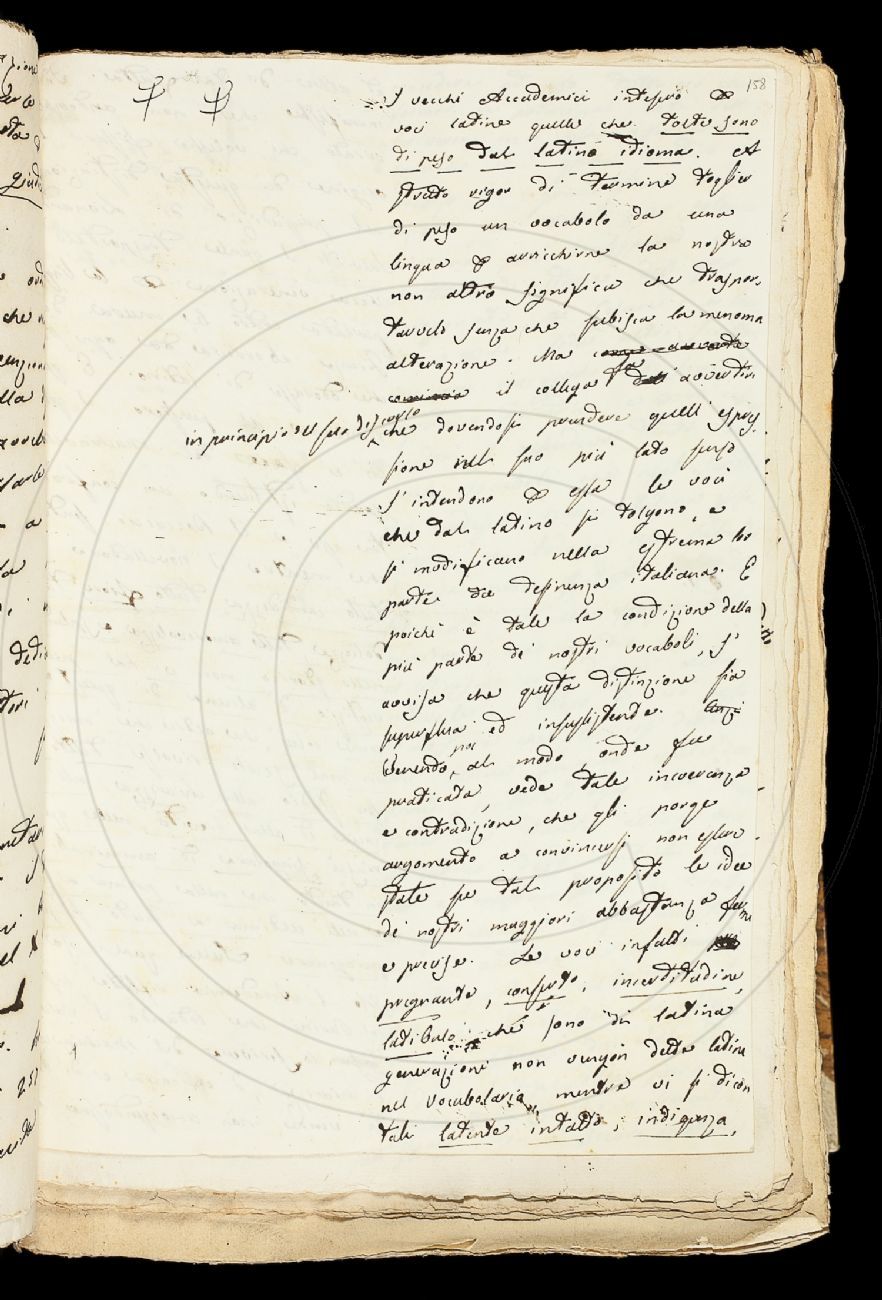 158
I vecchi Accademici intesero p
voci latine quelle che tolte sono
di peso dal latino idioma. A
stretto rigor di termine toglier
di peso un vocabolo da una
lingua p arricchirne la nostra
non altro significa che traspor-
tarvelo senza che subisca la menoma
alterazione. Ma
il collega fa avvertir
in principio del suo discorso
che dovendosi prendere quell' espres-
sione nel suo più lato senso
s' intendono p essa le voci
che dal latino si tolgono, e
si modificano nella estrema lor
parte da desinenza italiana. E
poichè è tale la condizione della
più parte de' nostri vocaboli, s'
avvisa che questa distinzione sia
superflua ed insussistente.
Venendo poi al modo, onde fu
praticata, vede tale incoerenza
e contradizione, che gli porge
argomento a convincersi non essere
state su tal proposito le idee
de' nostri maggiori abbastanza ferme
e precise. Le voci infatti
pregnante, conserto, incertitudine,
latibulo che sono di latina
generazione non vengon dette latine
nel vocabolario, mentre vi si dicon
tali latente intatto, indigenza,